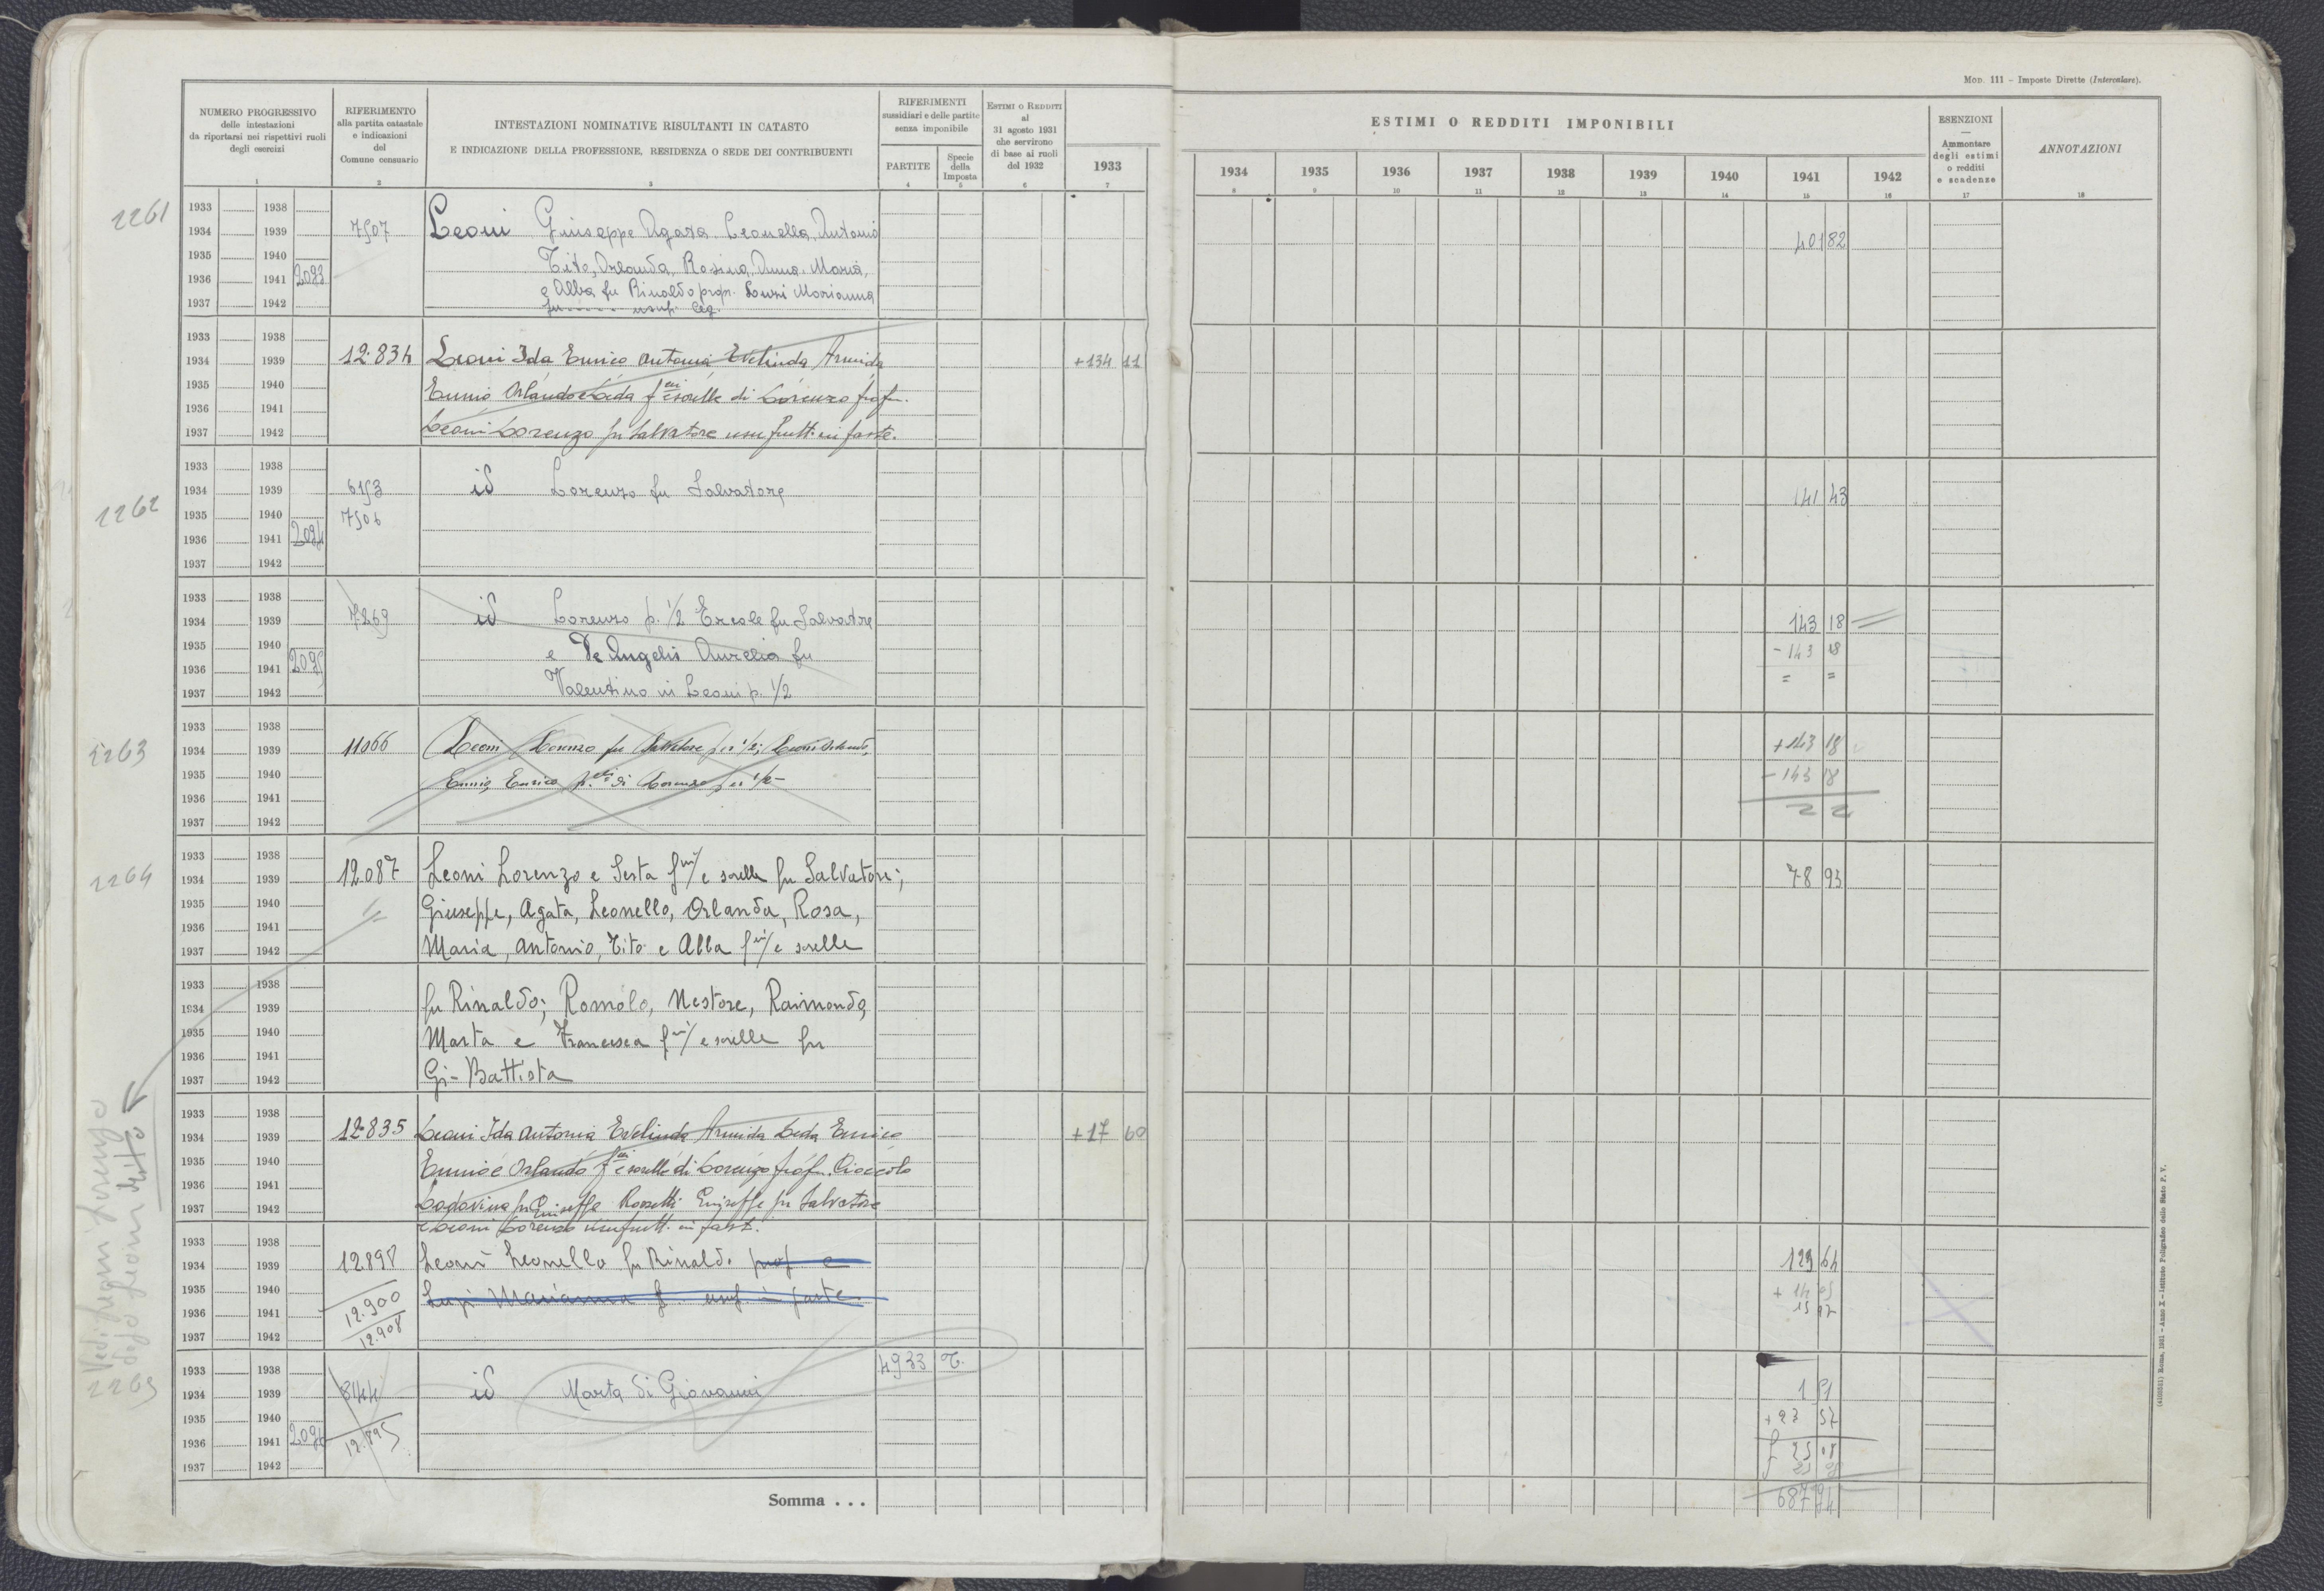 Mod. 111 – Imposte Dirette (Intercalare).
NUMERO PROGRESSIVO
delle intestazioni
da riportarsi nei rispettivi ruoli
degli esercizi
1
RIFERIMENTO
alla partita catastale
e indicazioni
del
Comune censuario
2
INTESTAZIONI NOMINATIVE RISULTANTI IN CATASTO
E INDICAZIONE DELLA PROFESSIONE, RESIDENZA O SEDE DEI CONTRIBUENTI
3
RIFERIMENTI
sussidiari e delle partite
senza imponibile
PARTITE
4
Specie
della
Imposta
5
Estimi o Redditi
al
31 agosto 1931
che servirono
di base ai ruoli
del 1932
6
1933
7
ESTIMI O REDDITI IMPONIBILI
1934 1935 1936 1937 1938 1939 1940 1941 1942
8 9 10 11 12 13 14 15 16
ESENZIONI
—
Ammontare
degli estimi
o redditi
e scadenze
17
ANNOTAZIONI
18
2261
1933 1938
1934 1939 7507 Leoni Giuseppe Agata Leonella Antonio 401 82
1935 1940 Tito, Orlanda, Rosina, Anna, Maria,
1936 1941 2093 e Alba fu Rinaldo propr. Marianna
1937 1942 fu ...... usuf. leg.
1933 1938
1934 1939 12.834 Leoni Ida Enrico Antonia Evelinda Armida +134 11
1935 1940 Ennio Orlando e Leda f.lli e sorelle di Lorenzo prop.
1936 1941
1937 1942 Leoni Lorenzo fu Salvatore usufrutt. in parte.
2262
1933 1938
1934 1939 6153 id Lorenzo fu Salvatore 141 43
1935 1940 7506
1936 1941 2094
1937 1942
1933 1938
1934 1939 7269 id Lorenzo p. 1/2 Ercole fu Salvatore 143 18
1935 1940 e De Angelis Aurelia fu - 143 18
1936 1941 2095
1937 1942 Valentino in Leoni p. 1/2 = =
2263
1933 1938
1934 1939 11066 Leoni Lorenzo fu Salvatore per 1/2; Leoni Orlando, +143 18
1935 1940 Ennio, Enrico f.lli di Lorenzo per 1/2 - 143 18
1936 1941
1937 1942
2264
1933 1938
1934 1939 12.087 Leoni Lorenzo e Sesta f.lli e sorelle fu Salvatore; 78 93
1935 1940 Giuseppe, Agata, Leonello, Orlanda, Rosa,
1936 1941
1937 1942 Maria, Antonio, Tito e Alba f.lli e sorelle
1933 1938
1934 1939 fu Rinaldo; Romolo, Nestore, Raimondo,
1935 1940 Marta e Francesca f.lli e sorelle fu
1936 1941
1937 1942 Gi-Battista
1933 1938
1934 1939 12.835 Leoni Ida Antonia Evelinda Armida Leda Enrico +17 60
1935 1940 Ennio e Orlando f.lli e sorelle di Lorenzo prop. Cioccolo
1936 1941
1937 1942 Lodovina fu Giuseppe Rossetti Giuseppe fu Salvatore
e Leoni Lorenzo usufrutt. in part.
1933 1938
1934 1939 12898 Leoni Leonello fu Rinaldo prop e 129 64
1935 1940 12.900 Lupi Marianna f. usuf. in parte
1936 1941
1937 1942 12.908
Vedi Leoni Lorenzo
dopo Leoni detto
2265
1933 1938 4933 T.
1934 1939 8144 id Marta di Giovanni 1 51
1935 1940 +23 57
1936 1941 2096 12.895 25 08
1937 1942
Somma . . . 687 94
(4103511) Roma, 1931 – Anno X – Istituto Poligrafico dello Stato P. V.